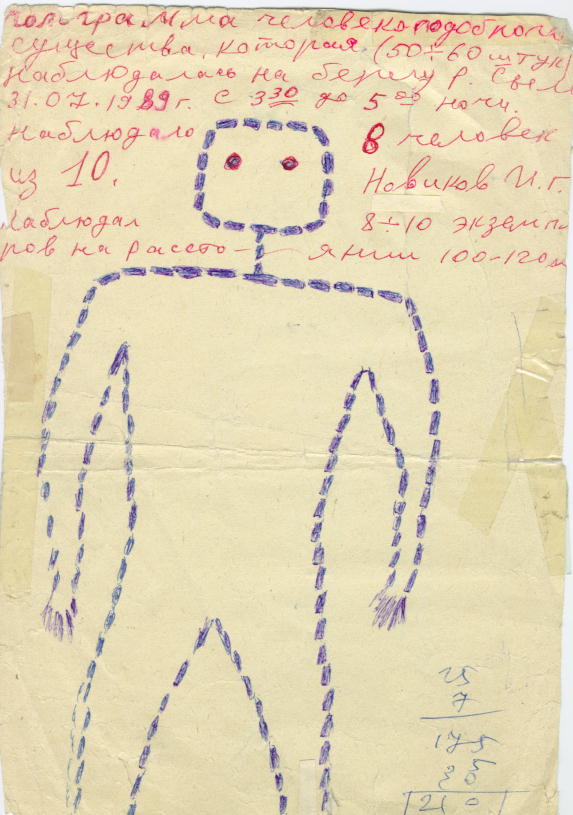 голограмма человекоподобного
существа, которая (50÷60 штук)
наблюдалась на берегу р.
31.07.1989 г. с 3³⁰ до 5⁰⁰ ночи.
Наблюдало 8 человек
из 10. Новиков И.Г.
Наблюдал 8÷10 экземпля
ров на рассто- янии 100-120м
25
7
175
210